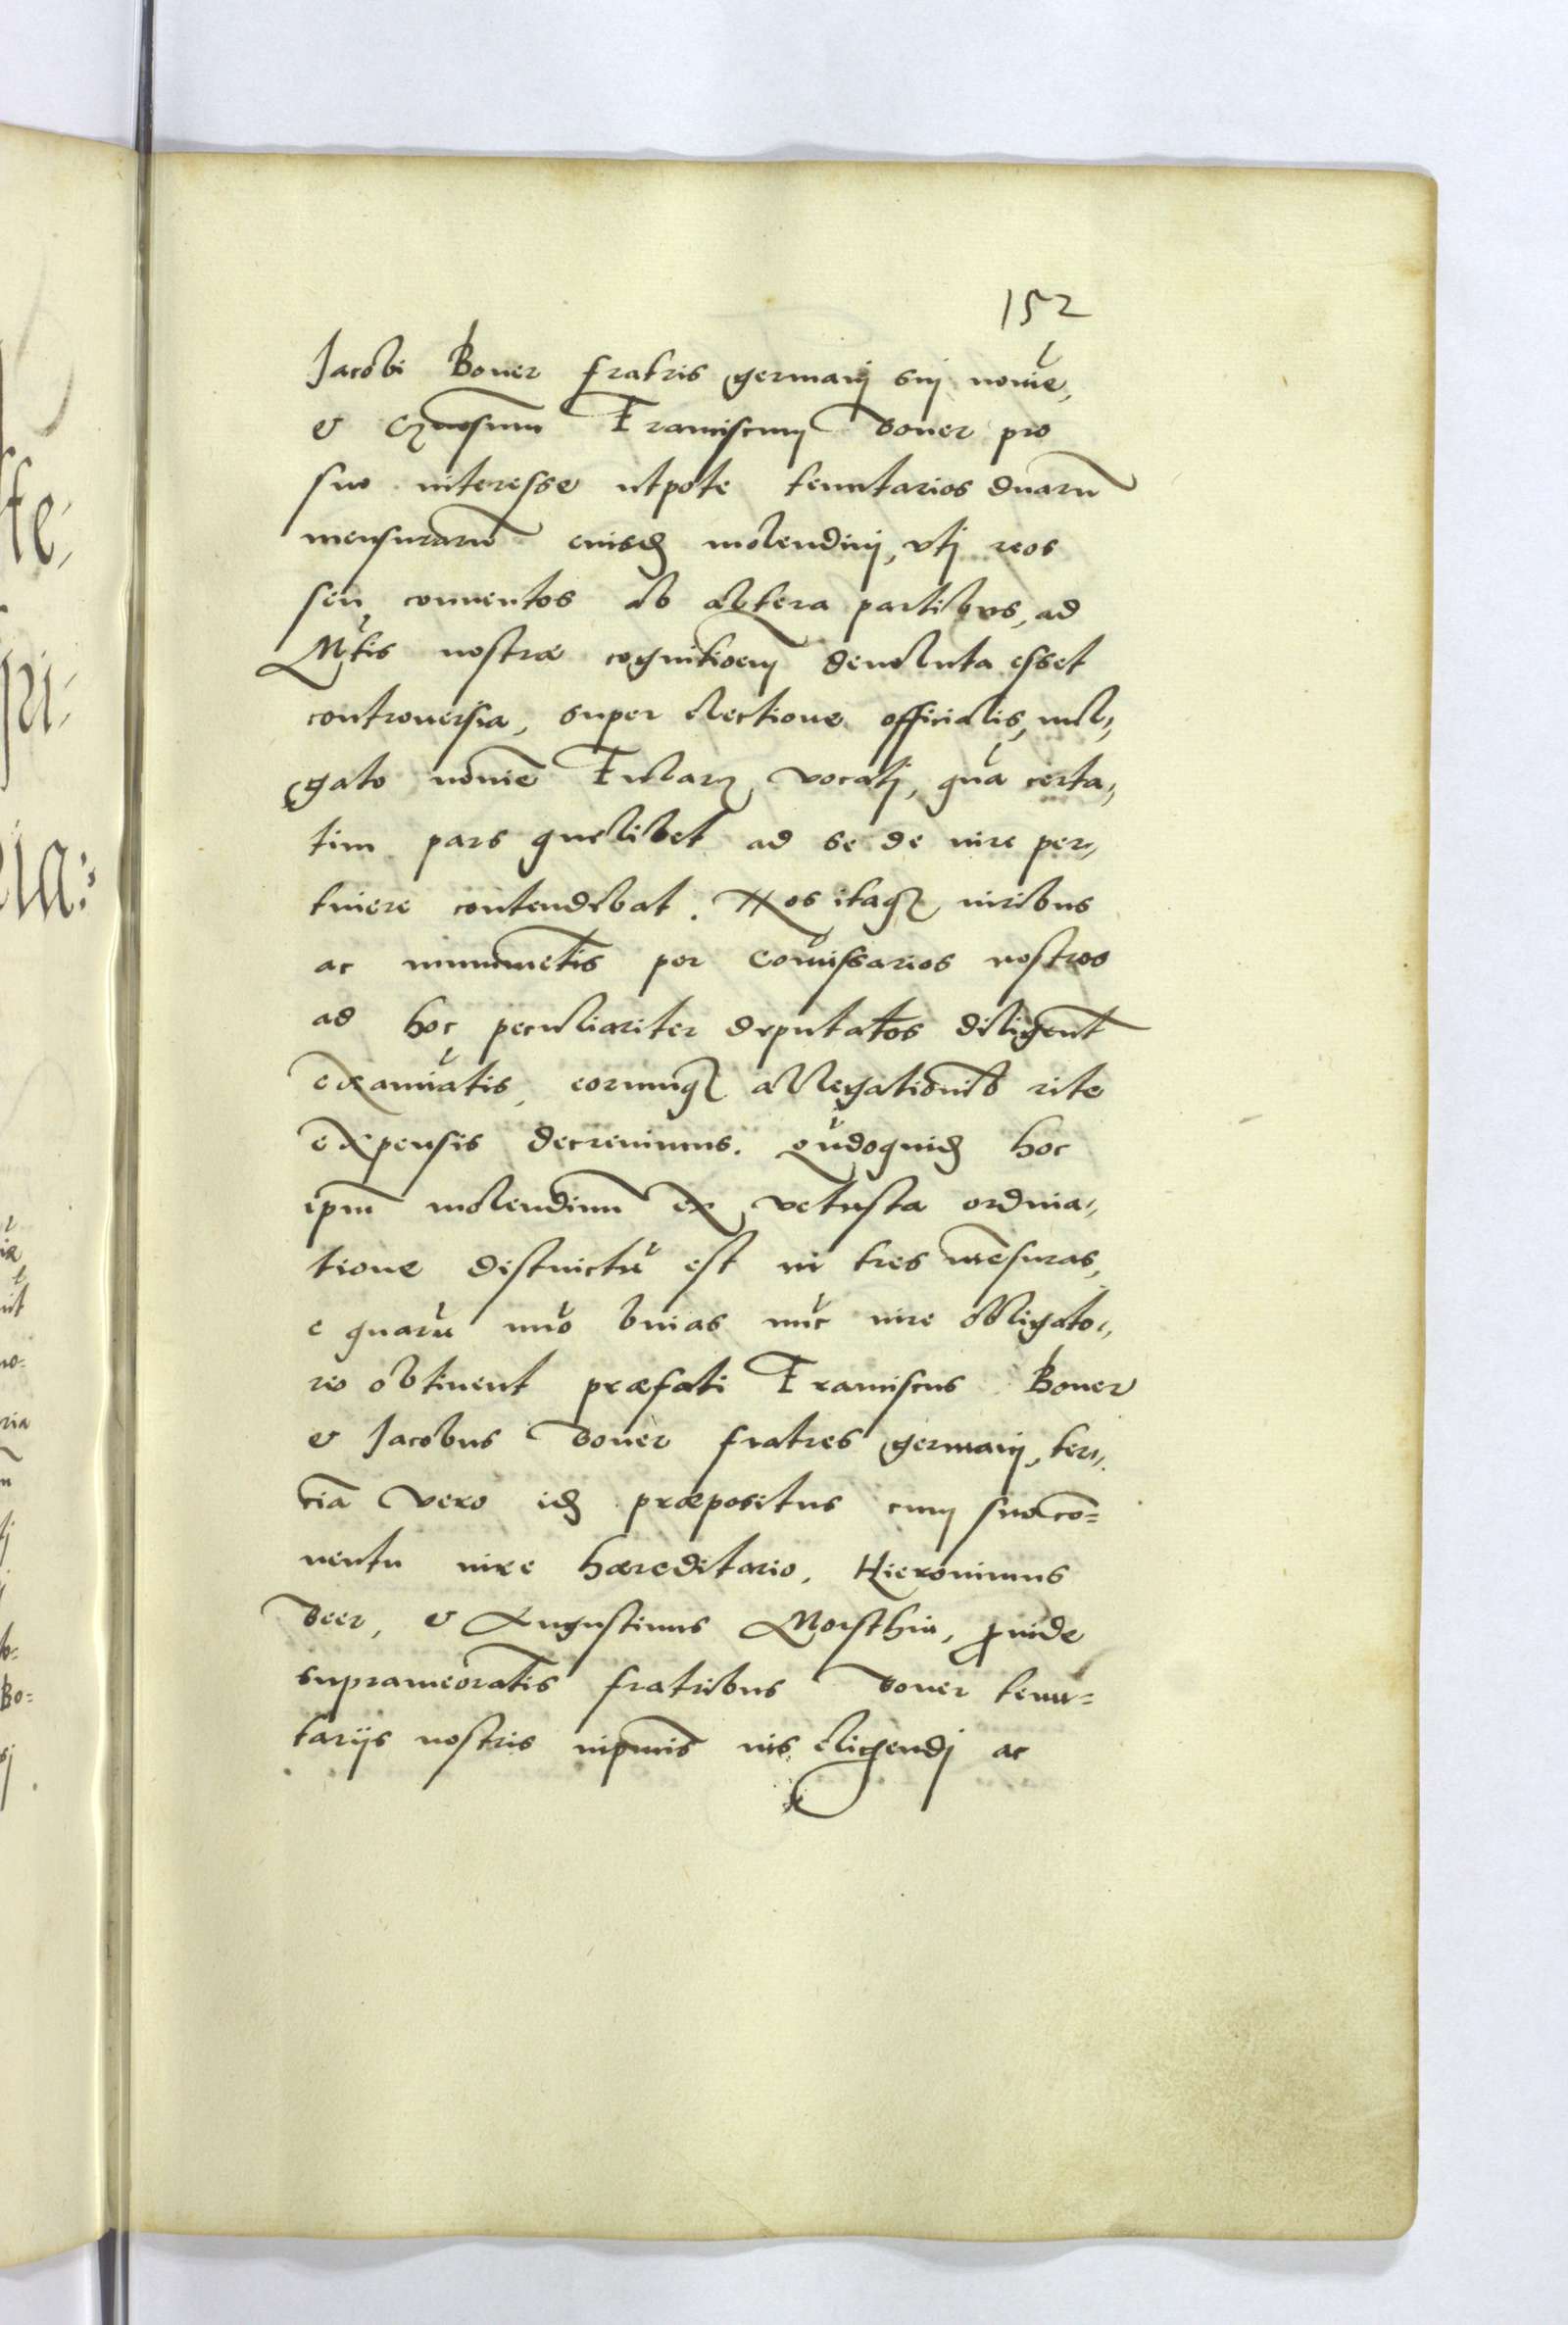 152
Jacobi Boner fratris germanj suj nomīe,
& Gn̄osum Franciscum Boner pro
suo interesse utpote tenutarios duarū
mensurarū eiusdē molendinj, vtj reos
seu conuentos ab altera partibus, ad
Mtis nostræ cognitioem deuoluta esset
controuersia, super electione officialis, uul„
gato nomīe Fularz vocatj, quā certa„
tim pars quælibet ad se de iure per„
tinere contendebat. Nos itaq3 iuribus
ac munimētis per Cōmissarios nostros
ad hoc peculiariter deputatos diligent
examīatis, eorumq3 allegationib rite
expensis decreuimus. Quādoquidē hoc
ipm molendinū ex vetusta ordina„
tione distinctū est in tres mēsuras,
e quarū nuō binas nūc iure obligato„
rio obtinent præfati Franciscus Boner
& Jacobus Boner fratres germanj, ter„
ciā vero idē præpositus cum suo cō=
uentu iure hæreditario, Hieronimus
Beer, & Augustinus Morsthin, proinde
suprameōratis fratribus Boner tenu=
tarijs nostris inpn̄tis ius eligendj ac